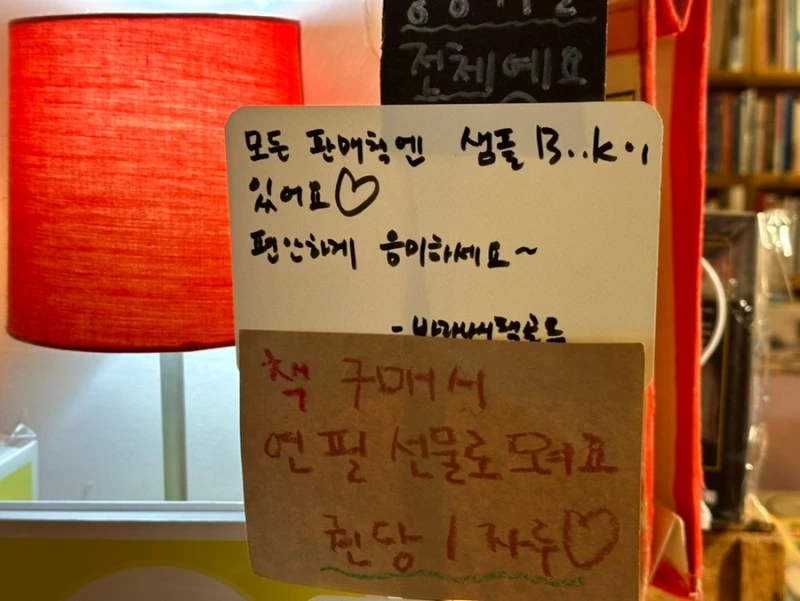 전체예요
모든 판매책엔 샘플 B..k이
있어요♡
편안하게 음미하세요~
책 구매시
연필 선물로 드려요
권당 1자루♡